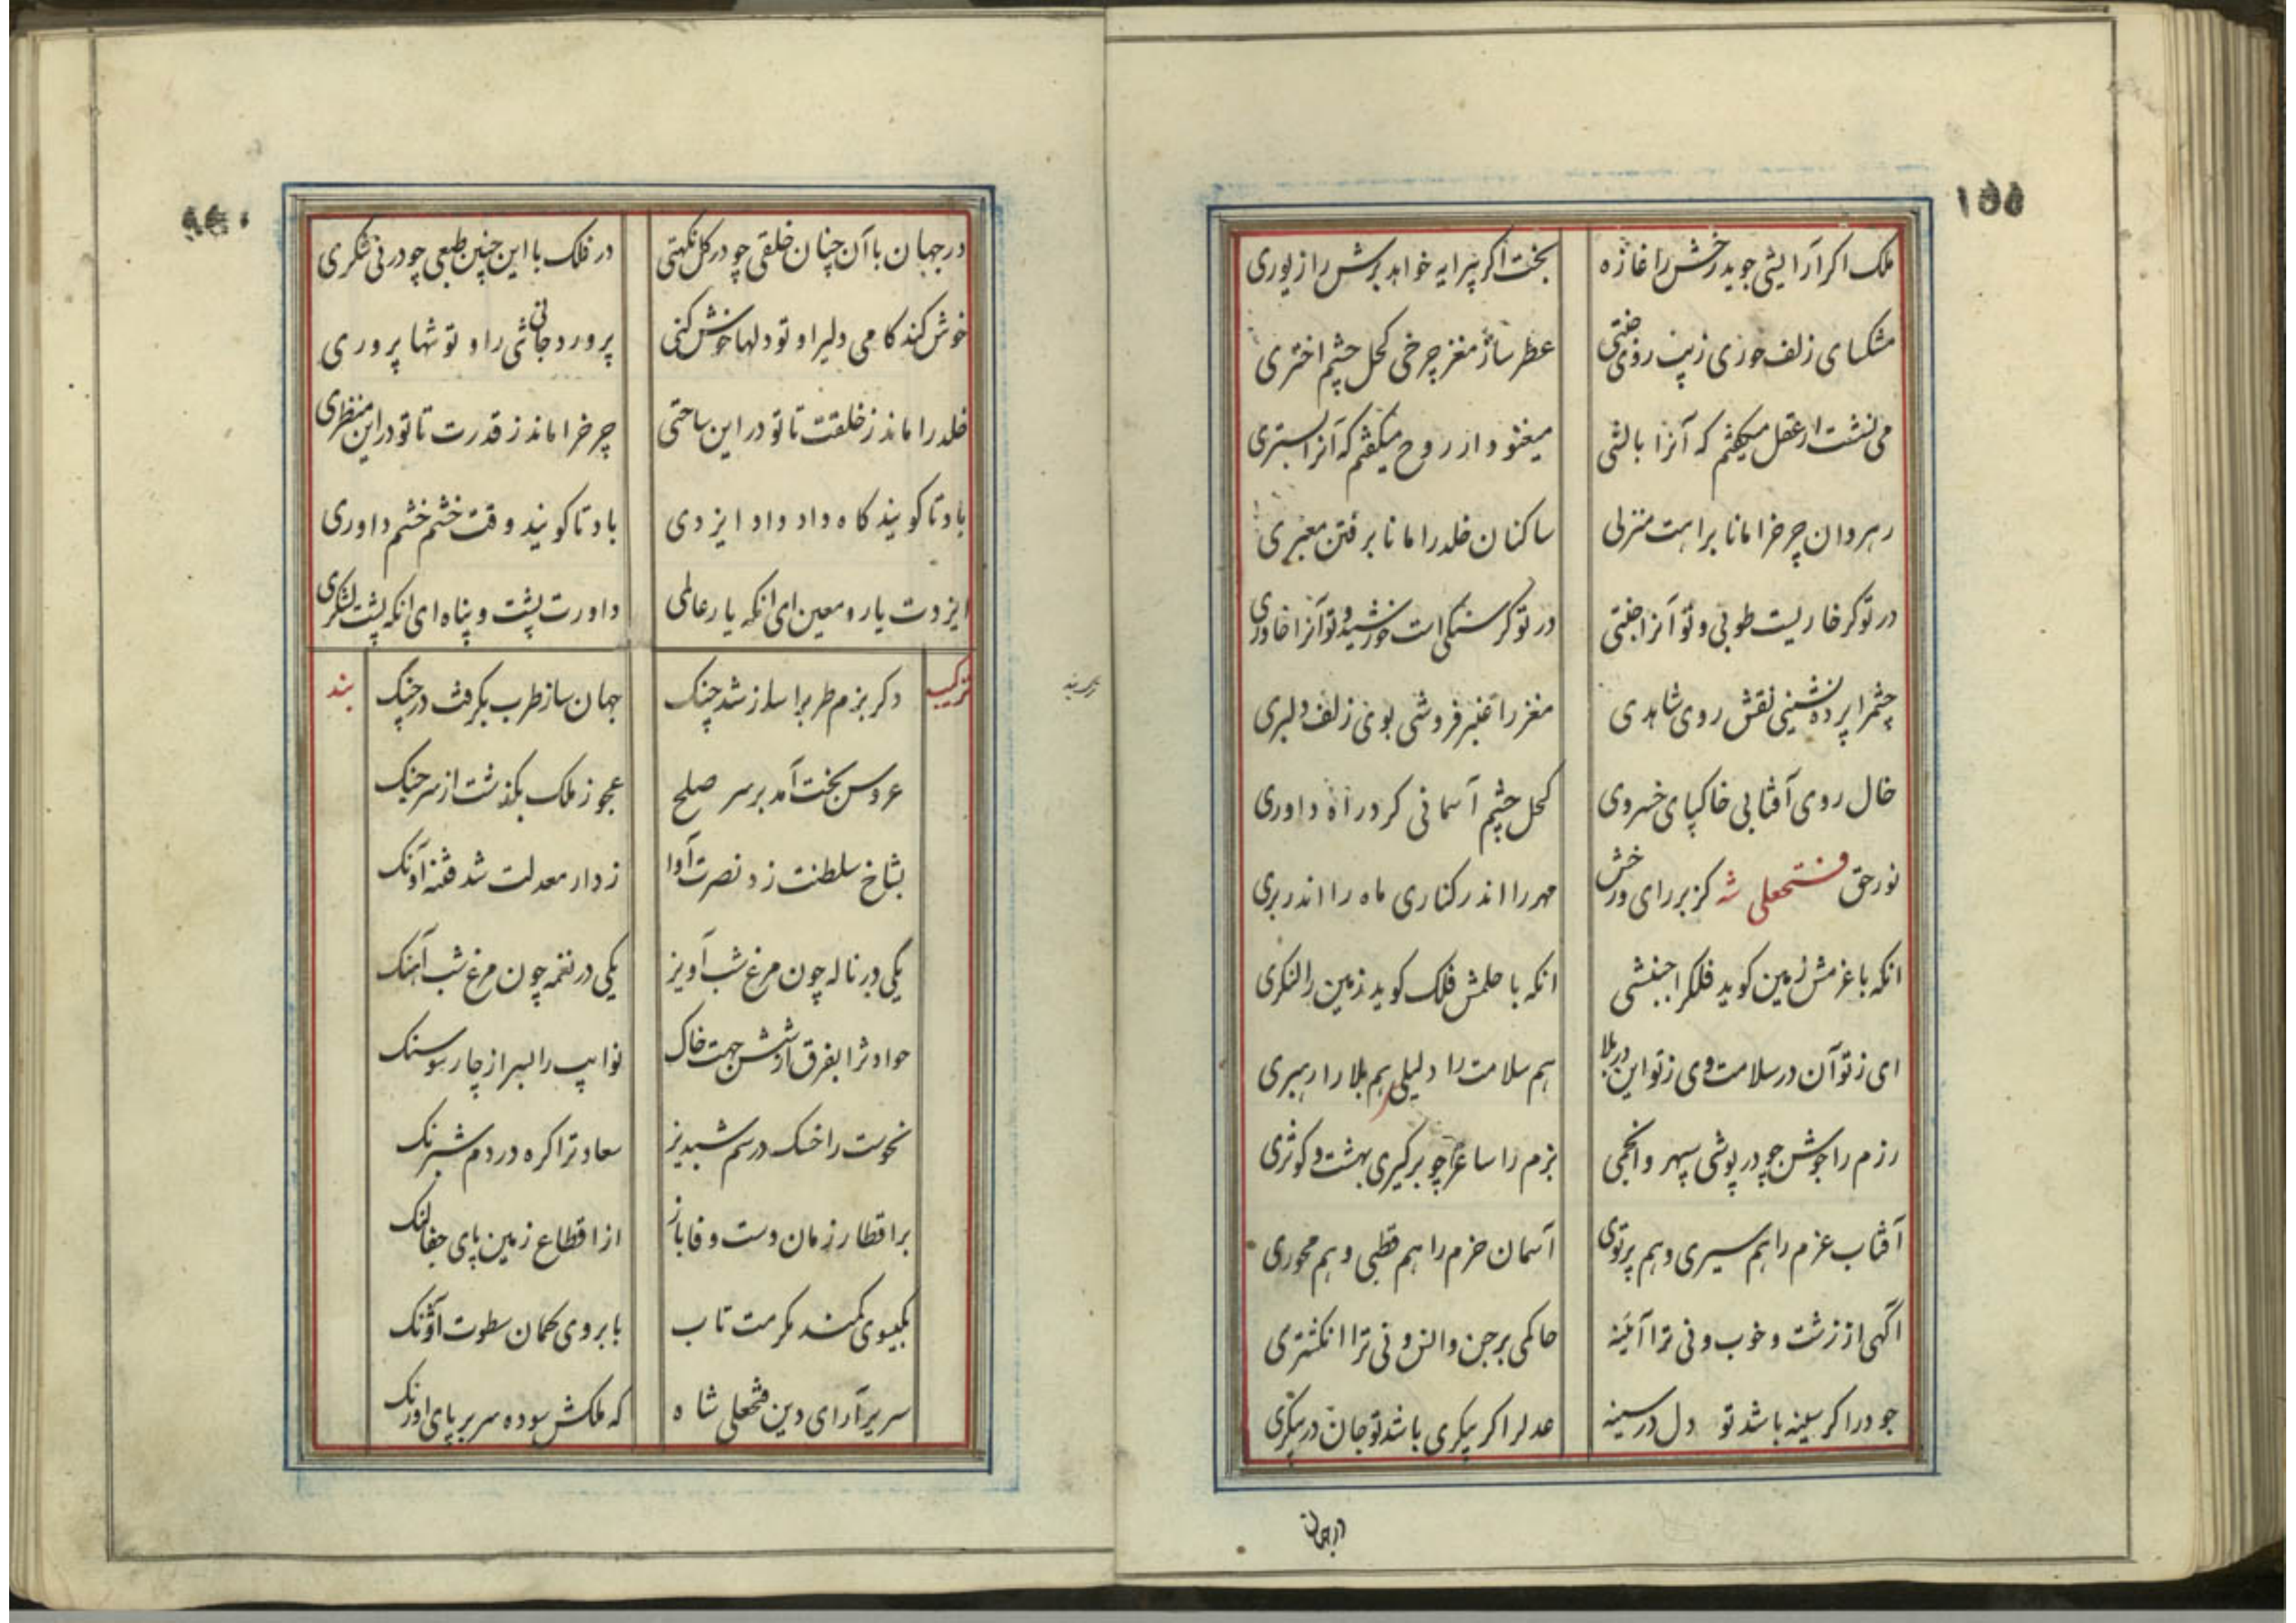 ۱۵۵
ملک اکر آرایشی جوید رخش را غازه بخت اکر پیرایه خواهد برش را زیوری
مشکسای زلف حوری زیب روی جنتی عطر ساز مغز چرخی کحل چشم اختری
می نشست ار عقل میکفتم که آنرا بالشی میغنود ار روح میکفتم که آنرا بستری
رهروان چرخرا مانا براهت منزلی ساکنان خلد را مانا برفتن معبری
در تو کر خاریست طوبی و تو آنرا جنتی در تو کر سنکی است خورشید و تو آنرا خاوری
چشمرا پرده نشینی نقش روی شاهدی مغز را عنبر فروشی بوی زلف دلبری
خال روی آفتابی خاکپای خسروی کحل چشم آسمانی کرد راه داوری
نور حق فتحعلی شه کز بر رای و رخش مهر را اندر کناری ماه را اندر بری
انکه با عزمش زمین کوید فلکرا جنبشی انکه با حلمش فلک کوید زمین را لنکری
ای ز تو آن در سلامت وی ز تو این در بلا هم سلامت را دلیلی هم بلا را رهبری
رزم را جوشن چو در پوشی سپهر و انجمی بزم را ساغر چو بر کیری بهشت و کوثری
آفتاب عزم را هم سیری و هم پرتوی آسمان حزم را هم قطبی و هم محوری
آکهی از زشت و خوب و نی ترا آئینه حاکمی بر جن و انس و نی ترا انکشتری
جود را کر سینه باشد تو دل در سینه عدلرا کر پیکری باشد تو جان در پیکری
در جهان
در جهان با آن چنان خلقی چو در کل نکهتی در فلک با این چنین طبعی چو در نی شکری
خوش کند کامی دلیر او تو دلها خوش کنی پرورد جانی تنی را و تو تنها پروری
خلد را ماند ز خلقت تا تو در این ساحتی چرخرا ماند ز قدرت تا تو در این منظری
باد تا کویند کاه داد داد ایزدی باد تا کویند وقت خشم خشم داوری
ایزدت یار و معین ای انکه یار عالمی داورت پشت و پناه ای انکه پشت لشکری
ترکیب بند
دکر بزم طرب را ساز شد چنک جهان ساز طرب بکرفت در چنک
عروس بخت آمد بر سر صلح عجوز ملک بکذشت از سر جنک
بشاخ سلطنت زد نصرت آوا ز دار معدلت شد فتنه آونک
یکی در ناله چون مرغ شب آویز یکی در نغمه چون مرغ شب آهنک
حوادثرا بفرق از شش جهت خاک نوایب را بسر از چار سو سنک
نحوست را خسک در سم شبدیز سعادترا کره در دم شبرنک
بر اقطار زمان دست وفا باز از اقطاع زمین پای جفا لنک
بکیسوی کمند مکرمت تاب بابروی کمان سطوت آژنک
سریر آرای دین فتحعلی شاه که ملکش سوده سر بر پای اورنک